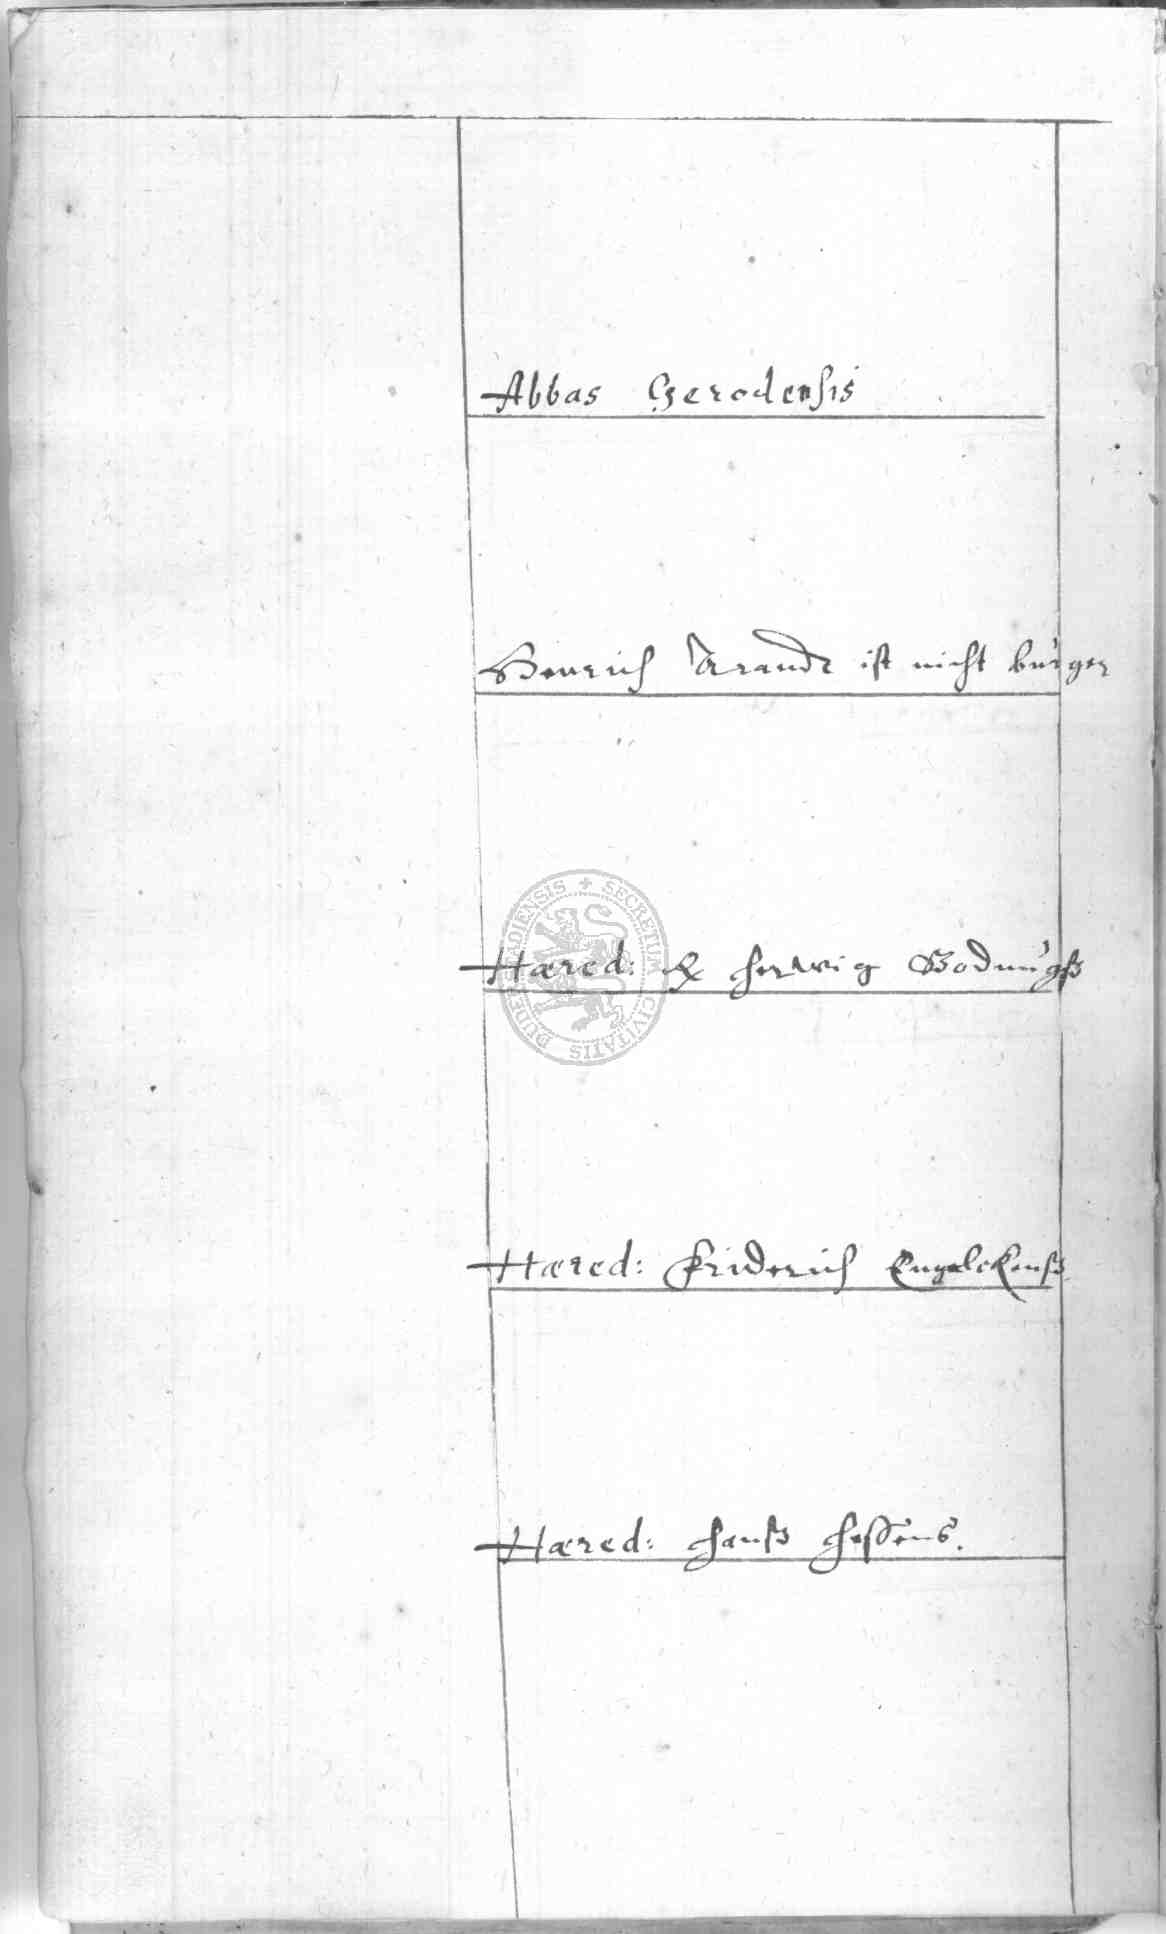 Abbas Gerodensis
Henrich Arandt ist nicht burger
Hæred: H herwig Bodungß
Hæred: Friderich Engelckenß
Hæred: Hanß Hessens.
SECRETUM CIVITATIS DUDERSTADIENSIS